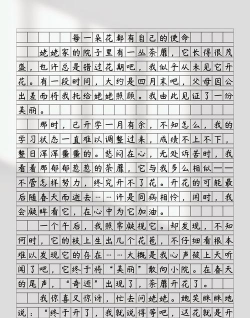 每一朵花都有自己的使命
姥姥家的院子里有一丛荼蘼，它长得很茂
盛，也许总是错过花期吧，我似乎从未见它开
花。有一段时间，大约是四月末吧，父母因公
出差而将我托给姥姥照顾。我由此见证了一份
美丽。
那时，已开学一月有余，不知怎么，我的
学习状态一直难以调整过来，成绩不上不下，
整日浑浑噩噩的。愁闷在心，无处诉苦时，我
看着郁郁葱葱的荼蘼，它与我多么相似——
不管怎样努力，终究开不了花。开花的可能最
后随春天而逝去……许是同病相怜，闲时，我
会凝眸看它，在心中为它加油。
一个午后，我照常瞅视它。却发现，不知
何时，它的枝上生出几个花苞，不仔细看根本
难以发现它的存在……大概是我心声被上天听
闻了吧，它终于将“美丽”散向小院。在春天
的尾声，“奇迹”出现了，荼蘼开花了。
我惊喜又惊讶，忙去问姥姥。她笑眯眯地
说：“终于开了，我就说得等吧，这荼蘼可是